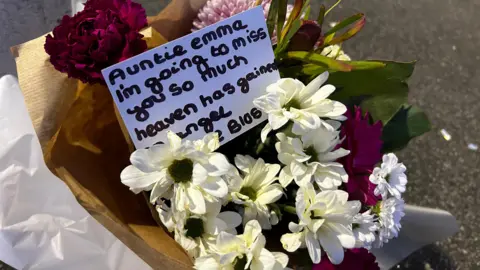 Auntie Emma
I'm going to miss
you so much
heaven has gained
angel